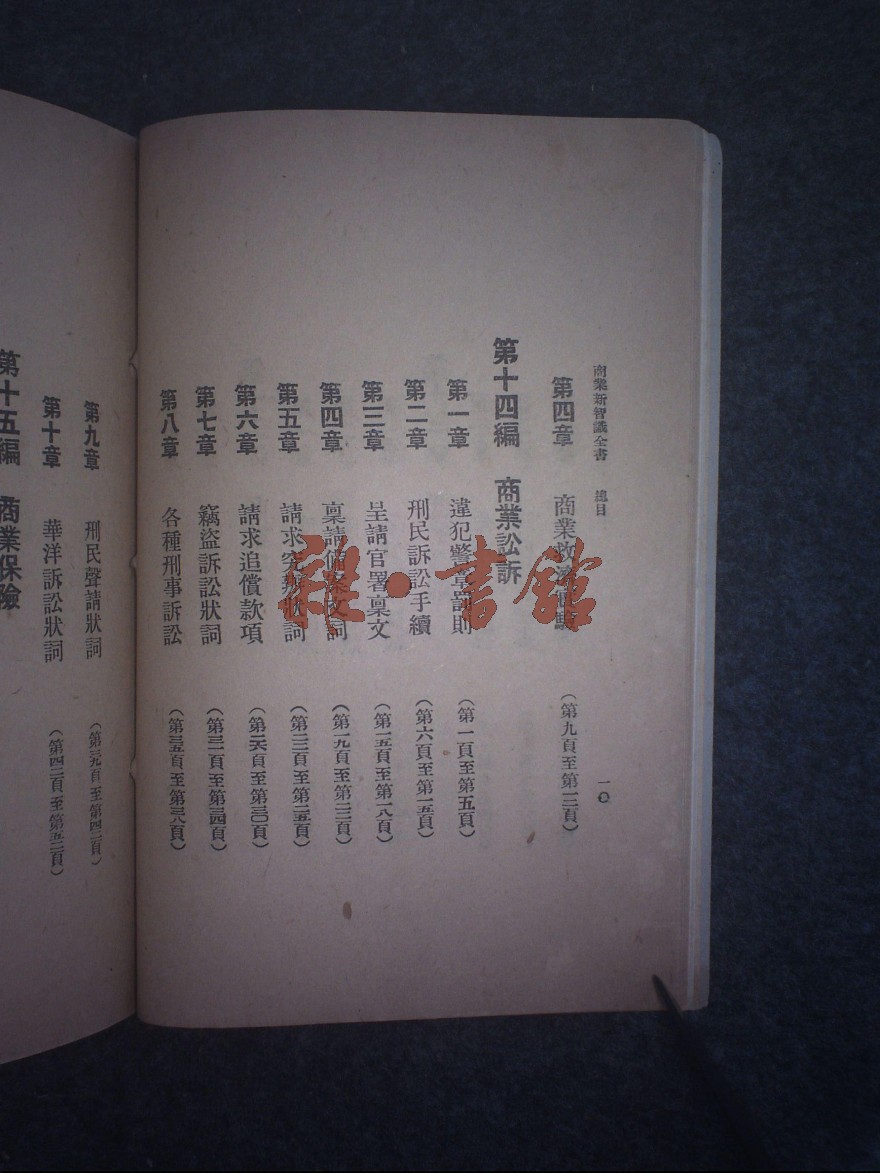 商業新智識全書 總目 一〇
第四章 商業救濟 (第九頁至第一三頁)
第十四編 商業訟訴
第一章 違犯警章罰則 (第一頁至第五頁)
第二章 刑民訴訟手續 (第六頁至第一五頁)
第三章 呈請官署稟文 (第一五頁至第一八頁)
第四章 稟請備案文詞 (第一九頁至第二二頁)
第五章 請求究辦狀詞 (第二三頁至第二五頁)
第六章 請求追償款項 (第二六頁至第三〇頁)
第七章 竊盜訴訟狀詞 (第三一頁至第三四頁)
第八章 各種刑事訴訟 (第三五頁至第三八頁)
第九章 刑民聲請狀詞 (第三九頁至第四二頁)
第十章 華洋訴訟狀詞 (第四二頁至第五二頁)
第十五編 商業保險
雜·書館